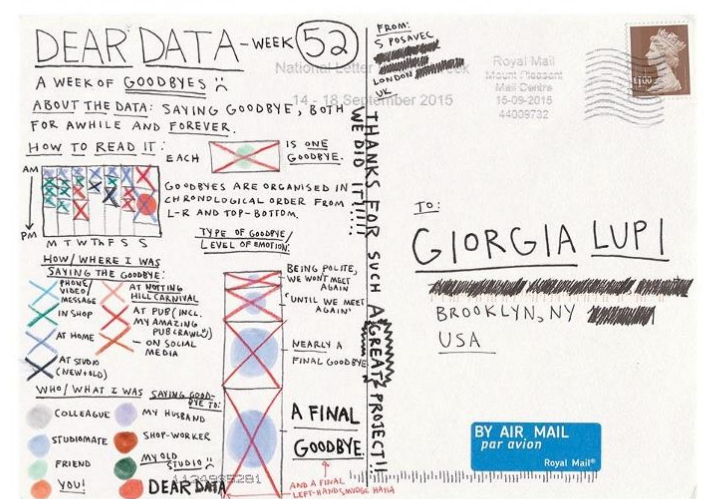 DEAR DATA - WEEK 52
A WEEK OF GOODBYES
ABOUT THE DATA: SAYING GOODBYE, BOTH
FOR AWHILE AND FOREVER.
HOW TO READ IT:
EACH
IS ONE
GOODBYE.
AM
PM
M T W Th F S S
GOODBYES ARE ORGANISED IN
CHRONOLOGICAL ORDER FROM
L-R AND TOP-BOTTOM.
HOW/WHERE I WAS
SAYING THE GOODBYE:
PHONE/
VIDEO/
MESSAGE
IN SHOP
AT HOME
AT STUDIO
(NEW+OLD)
AT NOTTING
HILL CARNIVAL
AT PUB (INCL.
MY AMAZING
PUB CRAWL)
ON SOCIAL
MEDIA
TYPE OF GOODBYE/
LEVEL OF EMOTION:
BEING POLITE,
WE WON'T MEET
AGAIN
'UNTIL WE MEET
AGAIN'
NEARLY A
FINAL GOODBYE
A FINAL
GOODBYE.
AND A FINAL
LEFT-HAND SMUDGE HAHA
WHO/WHAT I WAS SAYING GOOD-
BYE TO:
COLLEAGUE
STUDIOMATE
FRIEND
YOU!
MY HUSBAND
SHOP-WORKER
MY OLD
STUDIO
DEAR DATA
THANKS FOR SUCH A GREAT PROJECT!!
WE DID IT!!!!!
FROM:
S POSAVEC
LONDON
UK
National Letter
14 - 18 September 2015
Royal Mail
Mount Pleasant
Mail Centre
15-09-2015
44009732
£1.00
TO:
GIORGIA LUPI
BROOKLYN, NY
USA
BY AIR MAIL
par avion
Royal Mail®